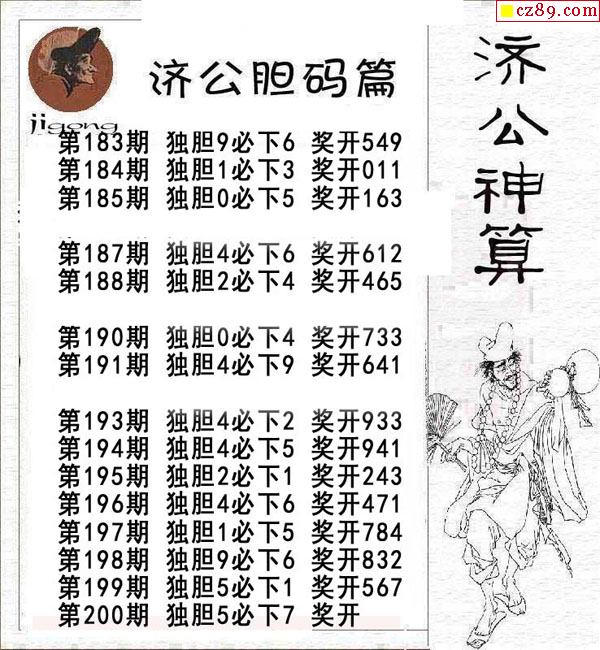 cz89.com
济公胆码篇
jigong
第183期 独胆9必下6 奖开549
第184期 独胆1必下3 奖开011
第185期 独胆0必下5 奖开163
第187期 独胆4必下6 奖开612
第188期 独胆2必下4 奖开465
第190期 独胆0必下4 奖开733
第191期 独胆4必下9 奖开641
第193期 独胆4必下2 奖开933
第194期 独胆4必下5 奖开941
第195期 独胆2必下1 奖开243
第196期 独胆4必下6 奖开471
第197期 独胆1必下5 奖开784
第198期 独胆9必下6 奖开832
第199期 独胆5必下1 奖开567
第200期 独胆5必下7 奖开
济公神算